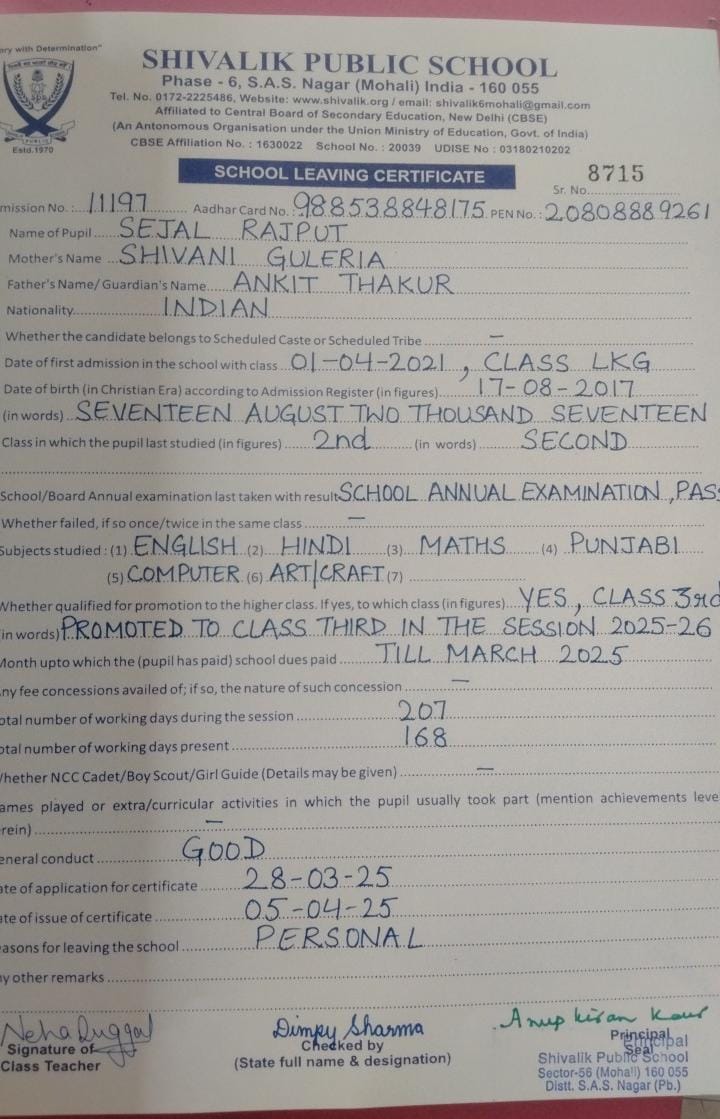 ary with Determination"
SHIVALIK PUBLIC SCHOOL
Phase - 6, S.A.S. Nagar (Mohali) India - 160 055
Tel. No. 0172-2225486, Website: www.shivalik.org / email: shivalik6mohali@gmail.com
Affiliated to Central Board of Secondary Education, New Delhi (CBSE)
(An Antonomous Organisation under the Union Ministry of Education, Govt. of India)
CBSE Affiliation No. : 1630022 School No. : 20039 UDISE No : 03180210202
Estd.1970
SCHOOL LEAVING CERTIFICATE
Sr. No. 8715
mission No.: 11197 Aadhar Card No. 988538848175 PEN No.: 20808889261
Name of Pupil SEJAL RAJPUT
Mother's Name SHIVANI GULERIA
Father's Name/ Guardian's Name ANKIT THAKUR
Nationality INDIAN
Whether the candidate belongs to Scheduled Caste or Scheduled Tribe —
Date of first admission in the school with class 01-04-2021, CLASS LKG
Date of birth (in Christian Era) according to Admission Register (in figures) 17-08-2017
(in words) SEVENTEEN AUGUST TWO THOUSAND SEVENTEEN
Class in which the pupil last studied (in figures) 2nd (in words) SECOND
School/Board Annual examination last taken with result SCHOOL ANNUAL EXAMINATION, PASS
Whether failed, if so once/twice in the same class —
Subjects studied : (1) ENGLISH (2) HINDI (3) MATHS (4) PUNJABI
(5) COMPUTER (6) ART/CRAFT (7)
Whether qualified for promotion to the higher class. If yes, to which class (in figures) YES, CLASS 3rd
in words) PROMOTED TO CLASS THIRD IN THE SESSION 2025-26
Month upto which the (pupil has paid) school dues paid TILL MARCH 2025
ny fee concessions availed of; if so, the nature of such concession —
otal number of working days during the session 207
otal number of working days present 168
Whether NCC Cadet/Boy Scout/Girl Guide (Details may be given) —
ames played or extra/curricular activities in which the pupil usually took part (mention achievements leve
erein) —
eneral conduct GOOD
ate of application for certificate 28-03-25
ate of issue of certificate 05-04-25
easons for leaving the school PERSONAL
ny other remarks
Neha Duggal
Signature of
Class Teacher
Dimpy Sharma
Checked by
(State full name & designation)
Anup kiran Kaur
Principal
Seal
Principal
Shivalik Public School
Sector-56 (Mohali) 160 055
Distt. S.A.S. Nagar (Pb.)